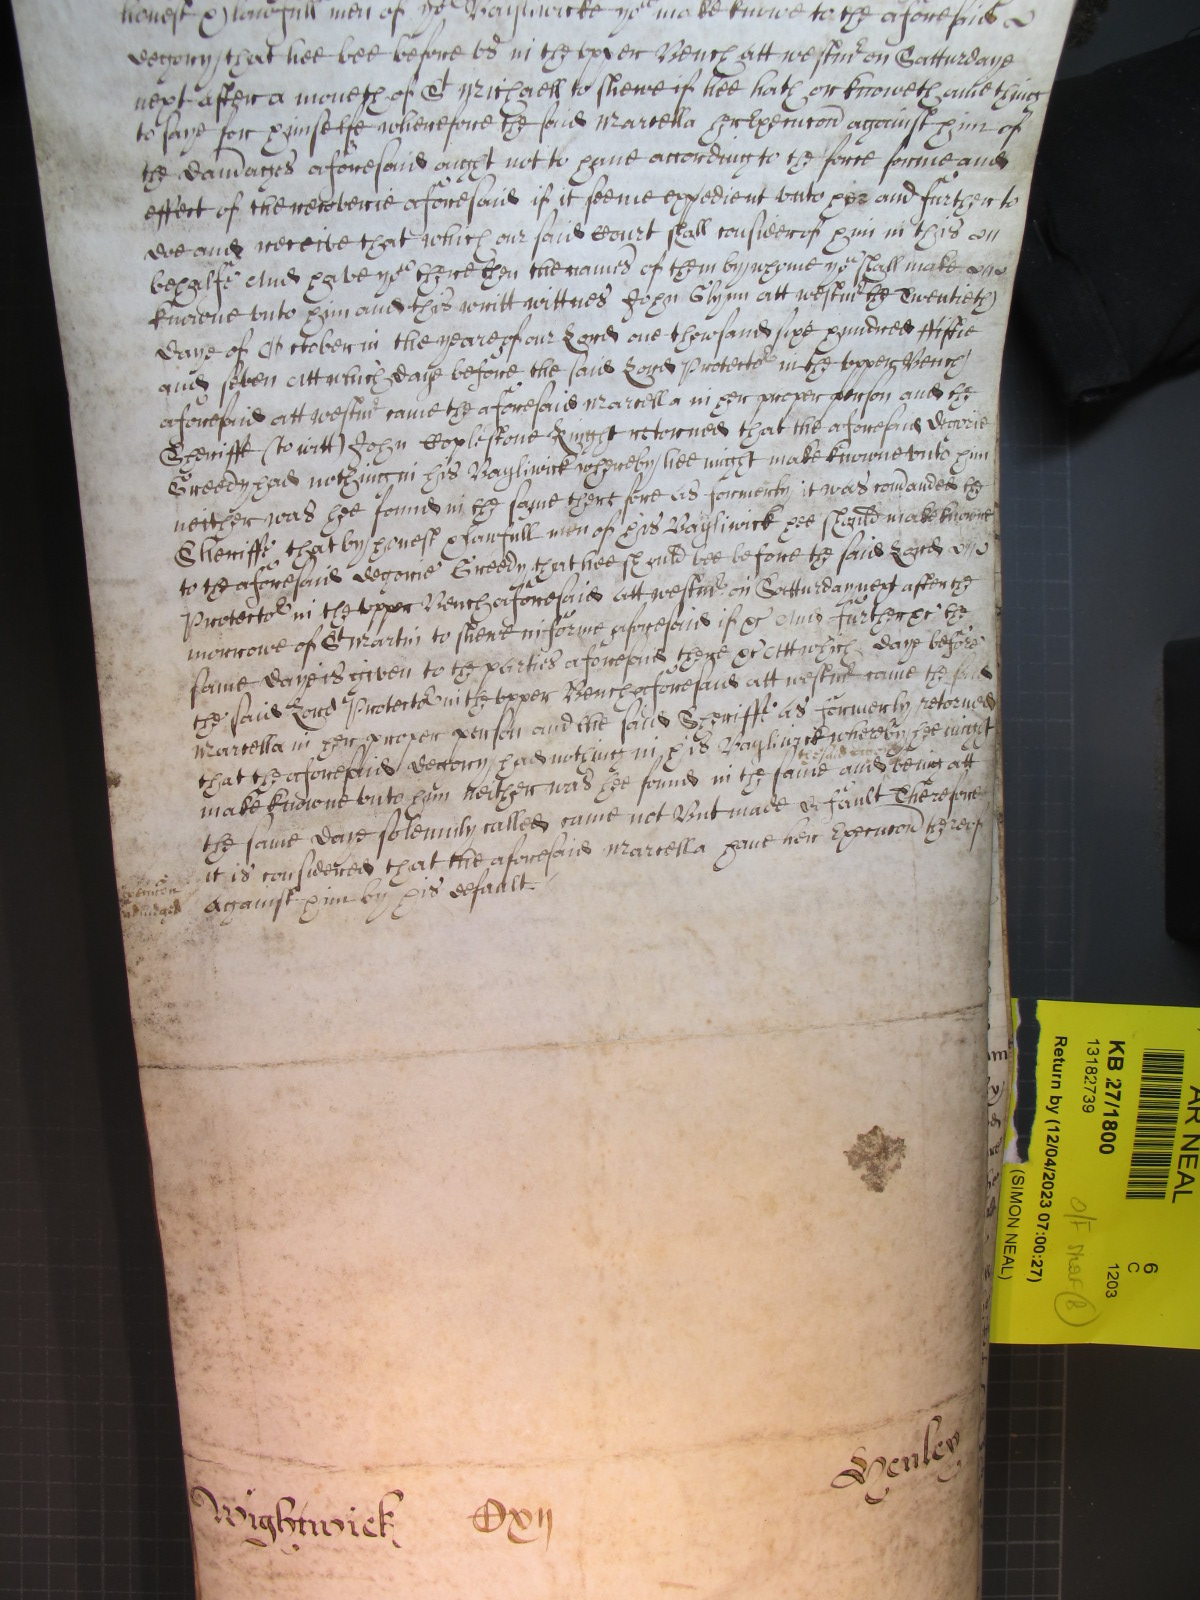 honest & lawfull men of yor Bayliwicke you make knowne to the aforesaid
Degory that hee bee before us in the upper Bench att westmr on Satturdaye
next after a moneth of St Michaell to shewe if hee hath or knoweth anie thing
to saye for himselfe wherefore the said Marcella her Execucon against him of
the damages aforesaid ought not to have according to the force forme and
effect of the recoverie aforesaid if it seeme expedient unto her and further to
doe and receive that which our said Court shall consider of him in this
behalfe And have you there then the names of them by whome you shall make
knowne unto him and this writt wittnes John Glynn att westmr the Twentieth
daye of October in the yeare of our Lord one thowsand sixe hundred fiftie
and seven Att which daye before the said Lord Protector in the upper Bench
aforesaid att westmr came the aforesaid Marcella in her proper person and the
Sheriffe (to witt) John Coplestone Knight retorned that the aforesaid Degorie
Greedy had nothing in his Bayliwick whereby hee might make knowne unto him
neither was hee found in the same therefore as formerly it was comanded the
Sheriffe that by honest & lawfull men of his Bayliwick hee should make knowne
to the aforesaid Degorie Greedy that hee should bee before the said Lord
Protector in the upper Bench aforesaid att westmr on Satturday next after the
morrowe of St Martin to shewe in forme aforesaid if &c And further &c the
same daye is given to the parties aforesaid there &c Att which daye before
the said Lord Protector in the upper Bench aforesaid att westmr came the said
Marcella in her proper person and the said Sheriffe as formerly retorned
that the aforesaid Degory had nothing in his Bayliwick whereby hee might
make knowne unto him neither was hee found in the same and being att
the same daye solemnly called came not But made default Therefore
it is considered that the aforesaid Marcella have her Execucon thereof
against him by his default.
Execucon
adiudged
Wightwick Oxij Henley
AR NEAL
KB 27/1800
13182739
Return by (12/04/2023 07:00:27)
(SIMON NEAL)
6
C
1203